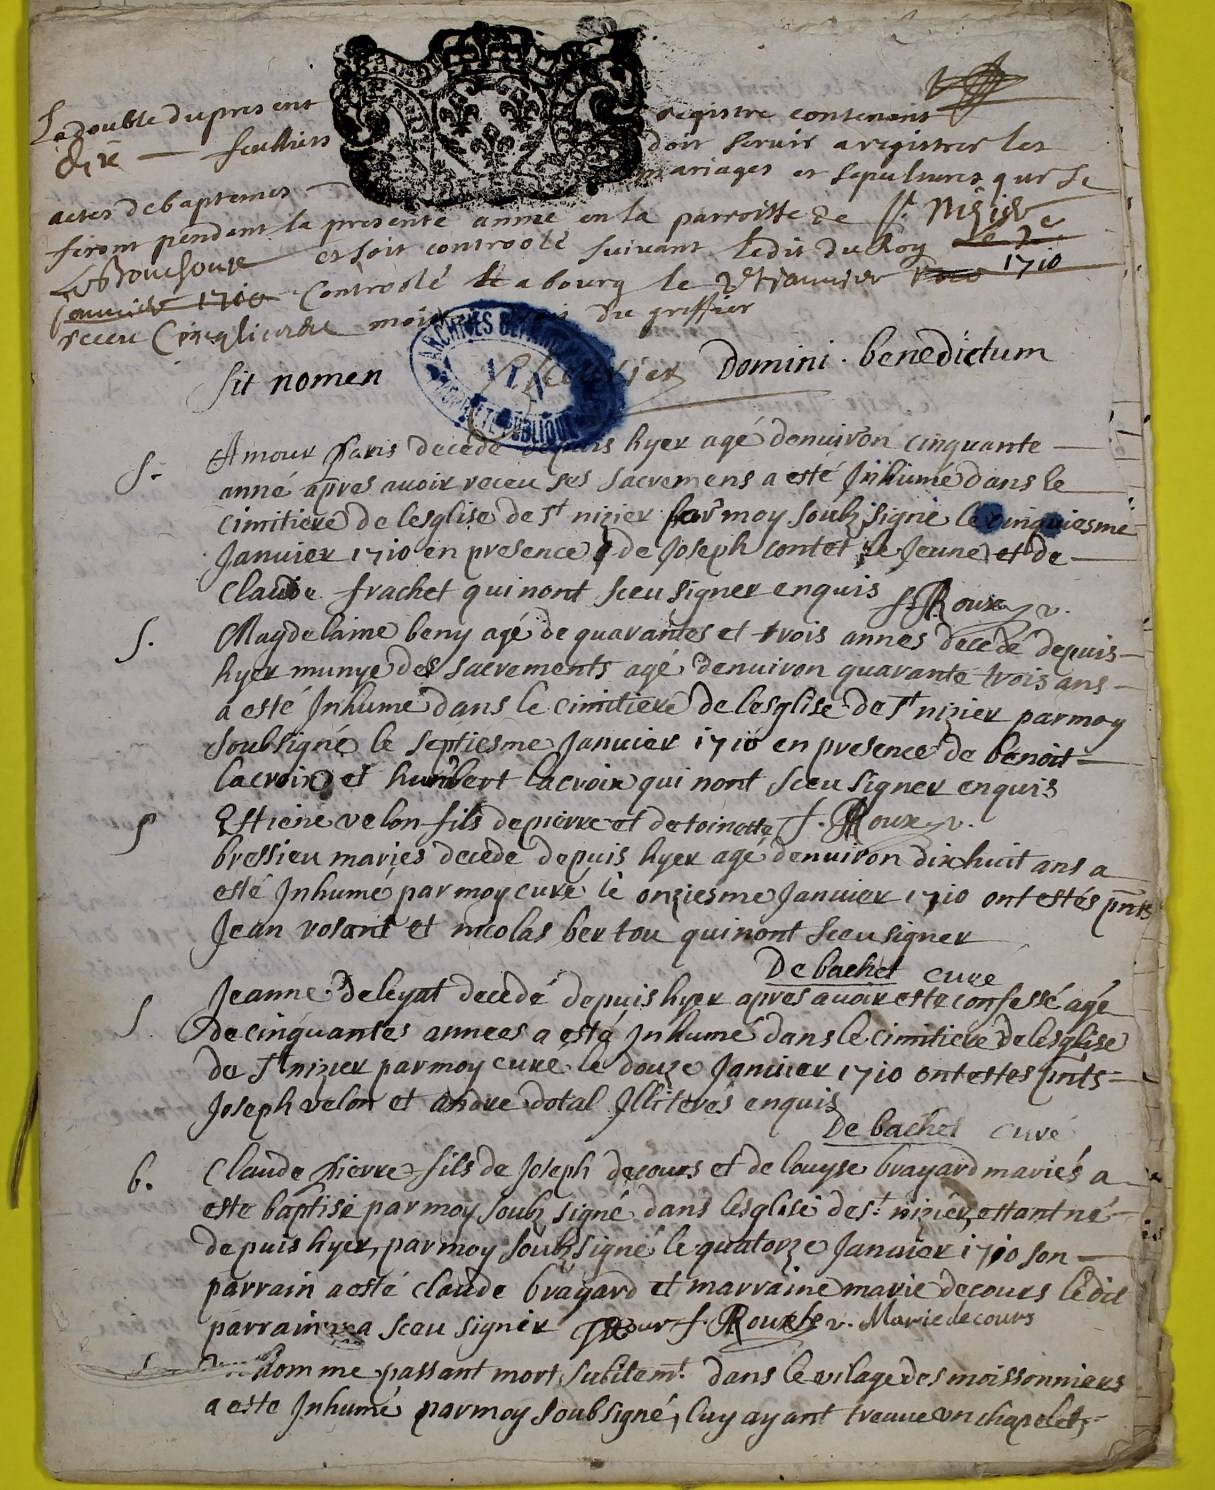 Le double du present registre contenant
dix feulliers doit servir a registrer les
actes de baptemes mariages et sepultures qui se
firont pendent la presente anneé en la parroisse de St. Nisier
Le Bouchoux et soit controolé suivant ledit du Roy Le 7e
Janvier 1710 Controolé a bourg le Janvier 1710
receu Cinq livres moitié du greffier
ARCHIVES DEPARTEMENTALES
AIN
PROPRIÉTÉ PUBLIQUE
Sit nomen Domini . benedictum
S. Amour paris decedé depuis hyer agé denuiron cinquante
anné apres auoir receu ses sacremens a esté Inhumé dans le
cimitiere de lesglise de St nizier par moy soubz signé le cinquiesme
Januier 1710 en presence de Joseph contet le Jeune et de
Claude frachet qui nont sceu signer enquis f. Roux v.
S. Magdelaine beny agé de quarantes et trois annes decedé depuis
hyer munye des sacrements agé denuiron quarante trois ans
a esté Inhumé dans le cimitiere de lesglise de St nizier par moy
soubsigné le septiesme Januier 1710 en presence de benoit
lacroix et humbert lacroix qui nont sceu signer enquis
S Estiene velon fils de pierre et de toinette f. Roux v.
bressieu mariés decede depuis hyer agé denuiron dix huit ans a
esté Inhumé par moy curé le onziesme Januier 1710 ont estés pnts
Jean volant et nicolas bertou qui nont sceu signer
De bachet curé
S Jeanne deleyat decedé depuis hyer apres auoir esté confessé agé
de cinquantes annees a esté Inhumé dans le cimitiere de lesglise
de St nizier par moy curé le douze Januier 1710 ont estes pnts
Joseph velon et andre dotal Illiteres enquis
De bachet curé
b. Claude pierre fils de Joseph decours et de louyse brayard mariés a
este baptisé par moy soubz signé dans lesglise de st. nizier, estant né
depuis hyer, par moy soubz signé le quatorze Januier 1710 son
parrain a esté claude brayard et marraine marie decours ledit
parrain a sceu signer f. Roux v. Marie decours
S homme passant mort subitemt. dans le vilage des moissonniers
a este Inhumé par moy soubsigné, luy ayant treuue un chapelet,